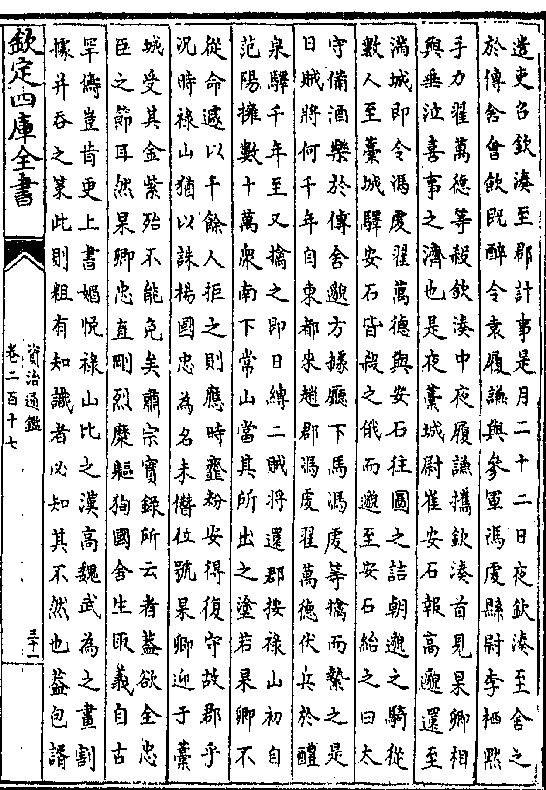 遣吏召欽湊至郡計事是月二十二日夜欽湊至舍之
於傳舍會飲既醉令袁履謙與參軍馮虔縣尉李栖黙
手力翟萬德等殺欽湊中夜履謙攜欽湊首見杲卿相
與垂泣喜事之濟也是夜藁城尉崔安石報高邈還至
滿城即令馮虔翟萬德與安石往圖之詰朝邈之騎從
數人至藁城驛安石皆殺之俄而邈至安石紿之曰太
守備酒樂於傳舍邈方據廳下馬馮虔等擒而縶之是
日賊將何千年自東都來趙郡馮虔翟萬德伏兵於醴
泉驛千年至又擒之即日縛二賊將還郡按祿山初自
范陽擁數十萬衆南下常山當其所出之塗若杲卿不
從命遽以千餘人拒之則應時虀粉安得復守故郡乎
况時祿山猶以誅楊國忠為名未僭位號杲卿迎于藁
城受其金紫殆不能免矣肅宗實錄所云者蓋欲全忠
臣之節耳然杲卿忠直剛烈糜軀狥國舍生取義自古
罕儔豈肯更上書媚悦祿山比之漢高魏武為之畫割
據并吞之策此則粗有知識者必知其不然也蓋包諝
欽定四庫全書
資治通鑑
卷二百十七
三十一